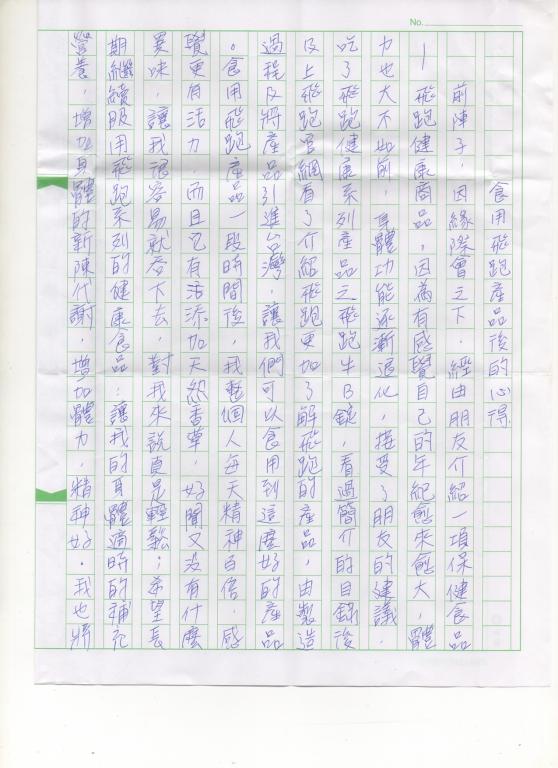 No.
食用飛跑產品後的心得
前陣子,因緣際會之下,經由朋友介紹一項保健食品
—飛跑健康商品,因為有感覺自己的年紀愈來愈大,體
力也大不如前,身體功能逐漸退化,接受了朋友的建議,
吃了飛跑健康系列產品之飛跑牛B錠,看過簡介的目錄後
及上飛跑官網看了介紹飛跑更加了解飛跑的產品,由製造
過程及將產品引進台灣,讓我們可以食用到這麼好的產品
。食用飛跑產品一段時間後,我整個人每天精神百倍,感
覺更有活力,而且它有活添加天然香草,好聞又沒有什麼
異味,讓我很容易就吞下去,對我來說真是輕鬆;希望長
期繼續服用飛跑系列的健康食品:讓我的身體適時的補充
營養,增加身體的新陳代謝,增加體力,精神好。我也將